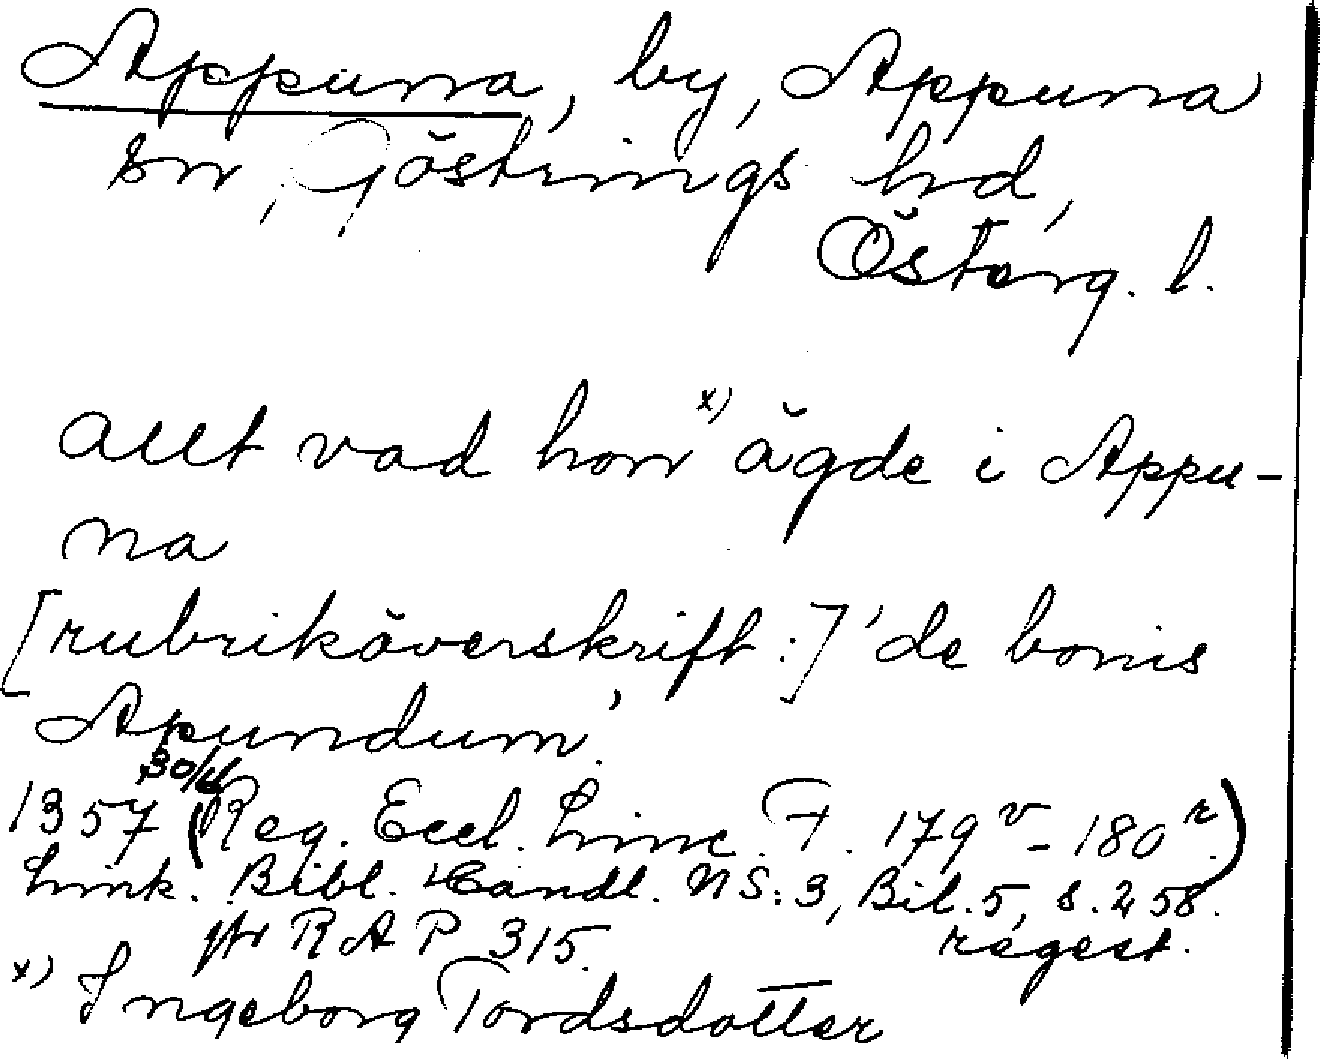 Appuna, by, Appuna
sn, Göstrings hd,
Österg. l.
allt vad hon x) ägde i Appu-
na
[rubriköverskrift:] 'de bonis
Apundum'.
1357 30/4 (Reg. Eccl. Linc. F. 179 v - 180 r.)
Link. Bibl. Handl. NS: 3, Bil. 5, s. 258.
ptr RAP 315. regest.
x) Ingeborg Tordsdotter